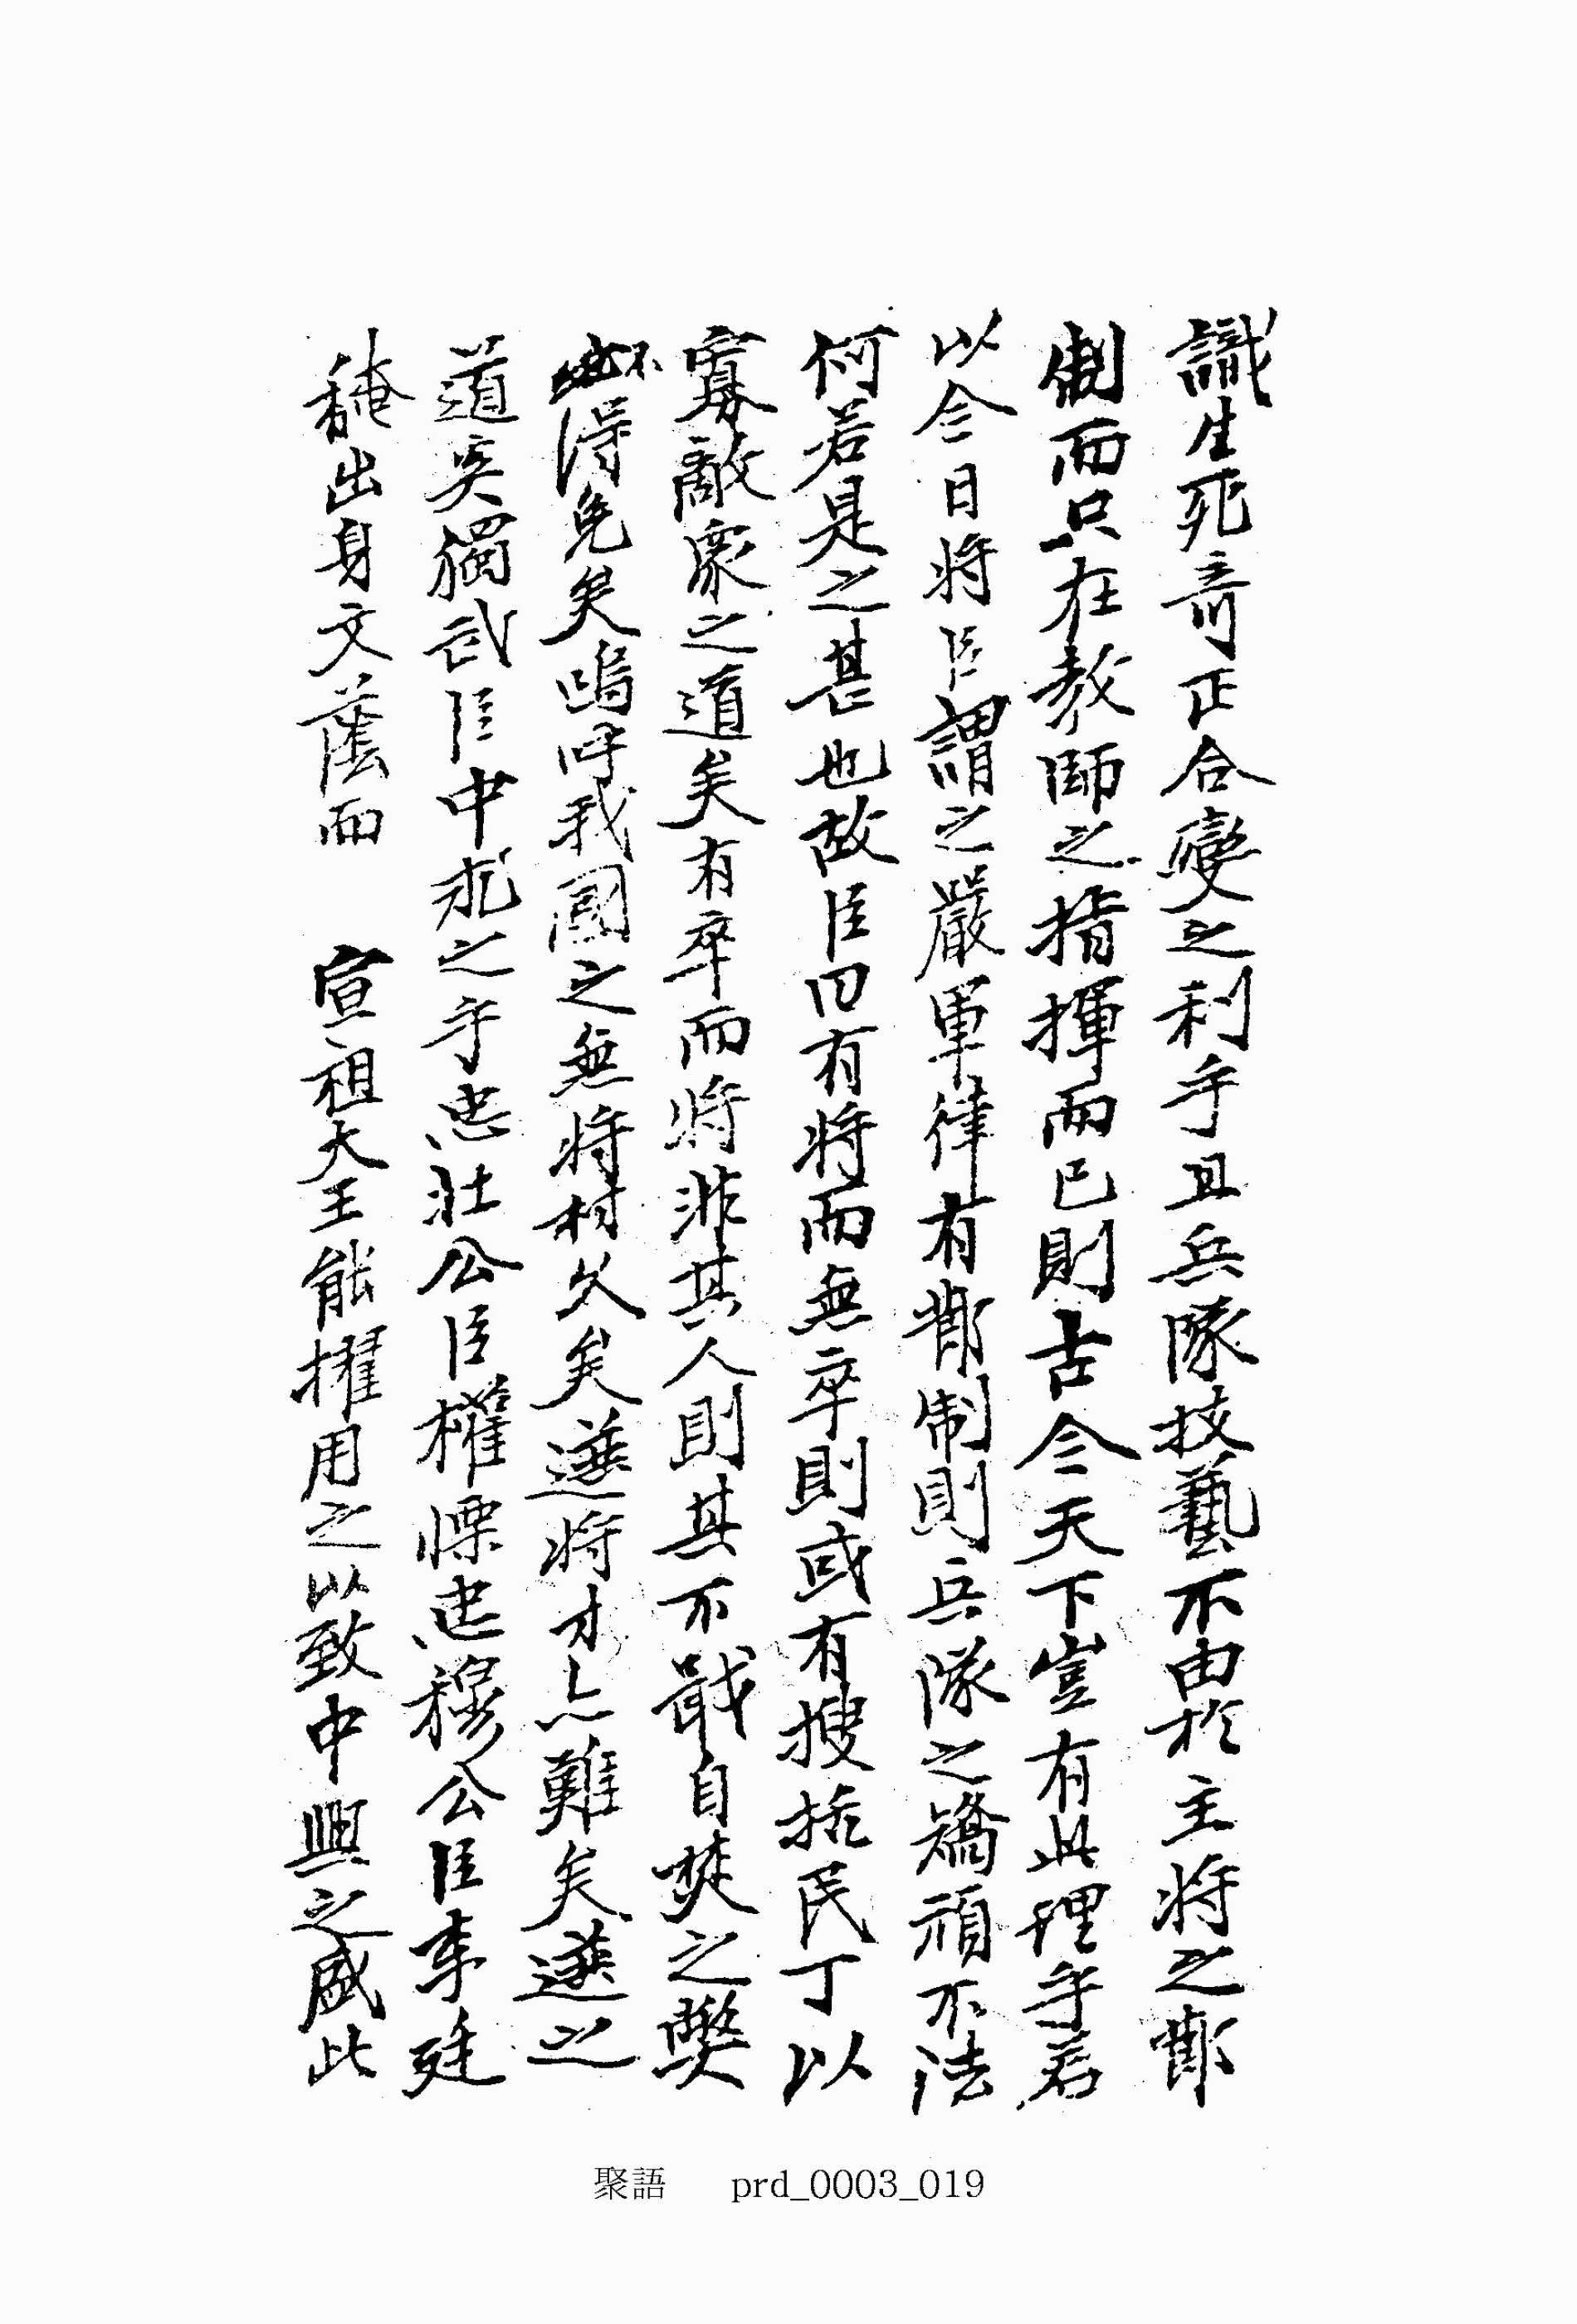 識生死奇正合變之利乎且兵隊技藝不由於主將之節
制而只在教師之指揮而已則古今天下豈有此理乎若
以今日將臣謂之嚴軍律有節制則兵隊之矯頑不法
何若是之甚也故臣曰有將而無卒則或有搜括民丁以
寡敵衆之道矣有卒而將非其人則其不戢自焚之弊
不得免矣嗚呼我國之無將材久矣選將才亦難矣選之
道奚獨武臣中求之乎忠壯公臣權慄忠穆公臣李廷
馣出身文蔭而 宣祖大王能擢用之以致中興之盛此
聚語 prd_0003_019